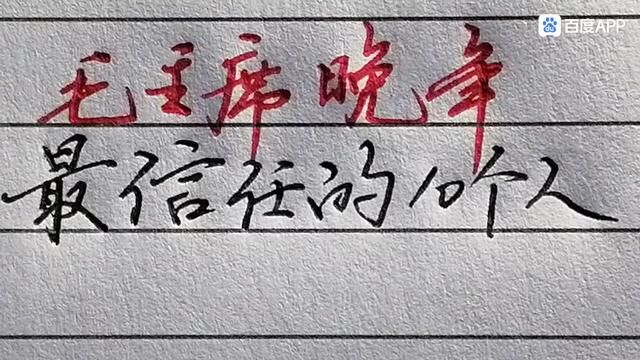 百度APP
毛主席晚年
最信任的10个人